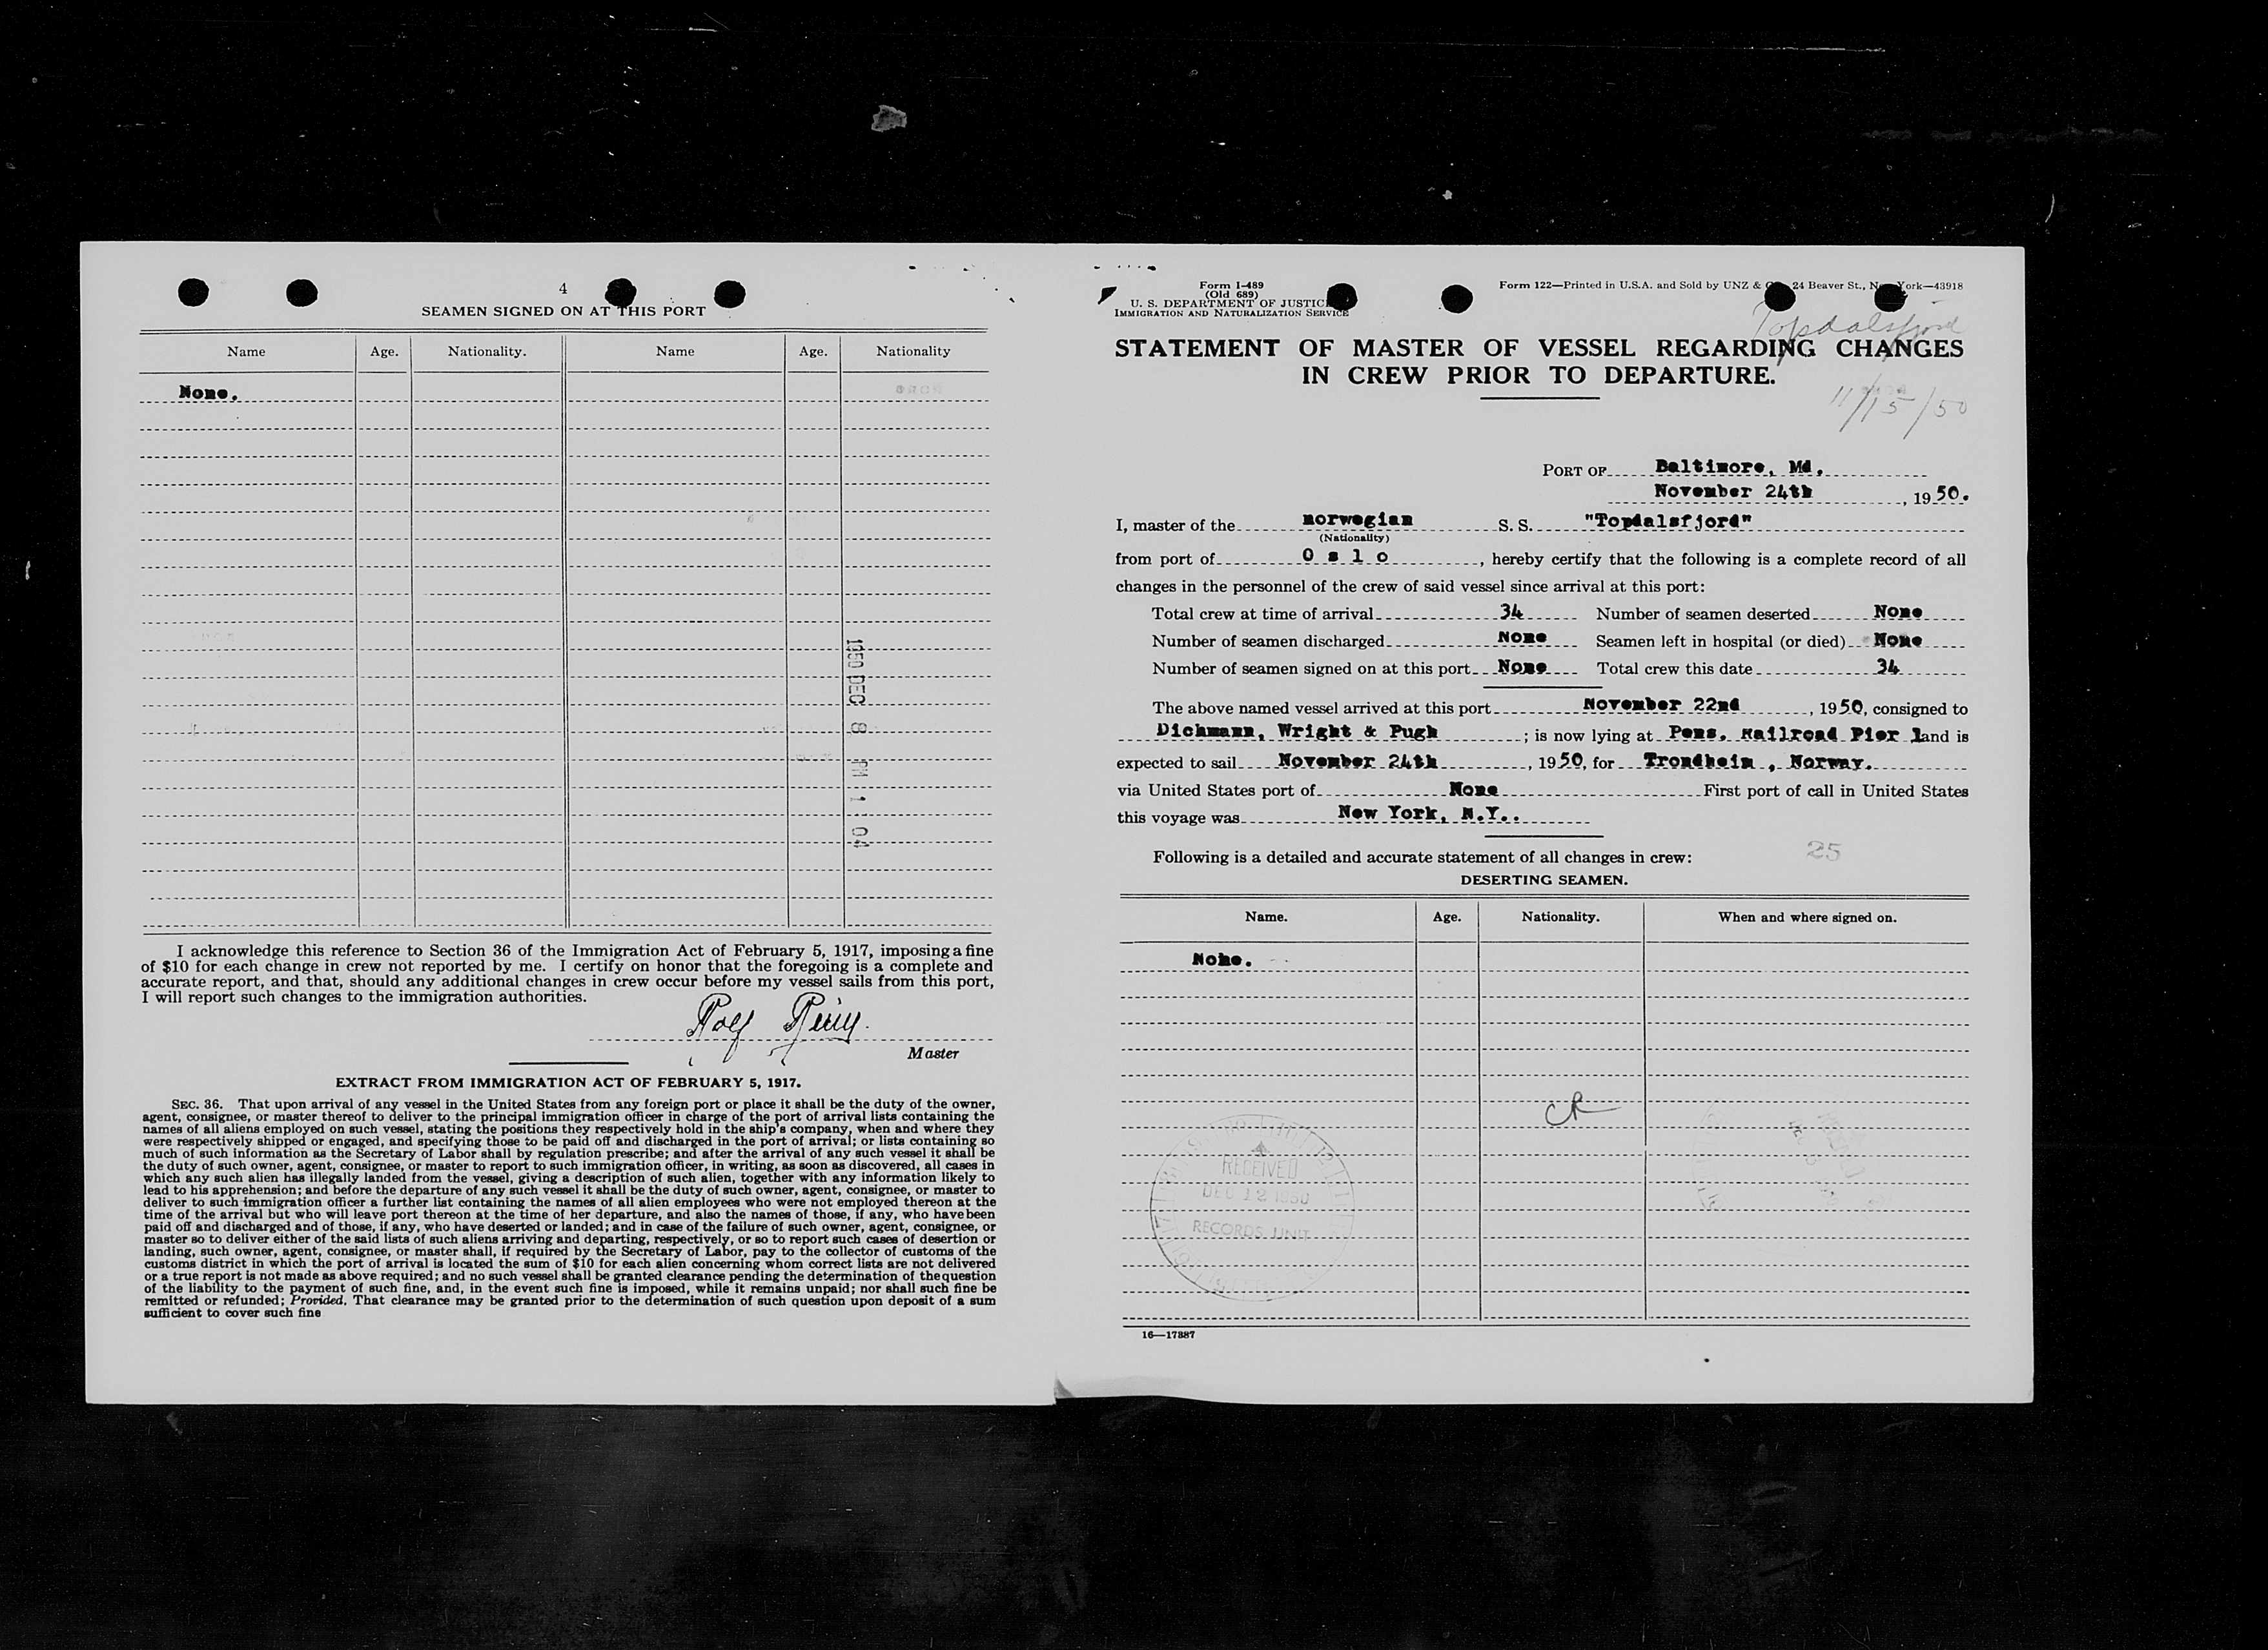 4
SEAMEN SIGNED ON AT THIS PORT
Name Age. Nationality. Name Age. Nationality
None.
1950 DEC 8 PM 1 04
I acknowledge this reference to Section 36 of the Immigration Act of February 5, 1917, imposing a fine
of $10 for each change in crew not reported by me. I certify on honor that the foregoing is a complete and
accurate report, and that, should any additional changes in crew occur before my vessel sails from this port,
I will report such changes to the immigration authorities.
Rolf
Master
EXTRACT FROM IMMIGRATION ACT OF FEBRUARY 5, 1917.
SEC. 36. That upon arrival of any vessel in the United States from any foreign port or place it shall be the duty of the owner,
agent, consignee, or master thereof to deliver to the principal immigration officer in charge of the port of arrival lists containing the
names of all aliens employed on such vessel, stating the positions they respectively hold in the ship's company, when and where they
were respectively shipped or engaged, and specifying those to be paid off and discharged in the port of arrival; or lists containing so
much of such information as the Secretary of Labor shall by regulation prescribe; and after the arrival of any such vessel it shall be
the duty of such owner, agent, consignee, or master to report to such immigration officer, in writing, as soon as discovered, all cases in
which any such alien has illegally landed from the vessel, giving a description of such alien, together with any information likely to
lead to his apprehension; and before the departure of any such vessel it shall be the duty of such owner, agent, consignee, or master to
deliver to such immigration officer a further list containing the names of all alien employees who were not employed thereon at the
time of the arrival but who will leave port thereon at the time of her departure, and also the names of those, if any, who have been
paid off and discharged and of those, if any, who have deserted or landed; and in case of the failure of such owner, agent, consignee, or
master so to deliver either of the said lists of such aliens arriving and departing, respectively, or so to report such cases of desertion or
landing, such owner, agent, consignee, or master shall, if required by the Secretary of Labor, pay to the collector of customs of the
customs district in which the port of arrival is located the sum of $10 for each alien concerning whom correct lists are not delivered
or a true report is not made as above required; and no such vessel shall be granted clearance pending the determination of the question
of the liability to the payment of such fine, and, in the event such fine is imposed, while it remains unpaid; nor shall such fine be
remitted or refunded; Provided, That clearance may be granted prior to the determination of such question upon deposit of a sum
sufficient to cover such fine
Form I-489
(Old 689)
U. S. DEPARTMENT OF JUSTICE
IMMIGRATION AND NATURALIZATION SERVICE
Form 122—Printed in U.S.A. and Sold by UNZ & 24 Beaver St., New York—43918
Topdalsfjord
STATEMENT OF MASTER OF VESSEL REGARDING CHANGES
IN CREW PRIOR TO DEPARTURE.
11/15/50
PORT OF Baltimore, Md.
November 24th, 1950.
I, master of the norwegian S. S. "Topdalsfjord"
(Nationality)
from port of O s l o, hereby certify that the following is a complete record of all
changes in the personnel of the crew of said vessel since arrival at this port:
Total crew at time of arrival 34 Number of seamen deserted None
Number of seamen discharged None Seamen left in hospital (or died) None
Number of seamen signed on at this port None Total crew this date 34
The above named vessel arrived at this port November 22nd, 1950, consigned to
Dichmann, Wright & Pugh; is now lying at Penn. Railroad Pier 1 and is
expected to sail November 24th, 1950, for Trondheim , Norway.
via United States port of None First port of call in United States
this voyage was New York, N.Y..
Following is a detailed and accurate statement of all changes in crew:
25
DESERTING SEAMEN.
Name. Age. Nationality. When and where signed on.
None.
CR
RECEIVED
DEC 12 1950
RECORDS UNIT
16—17887